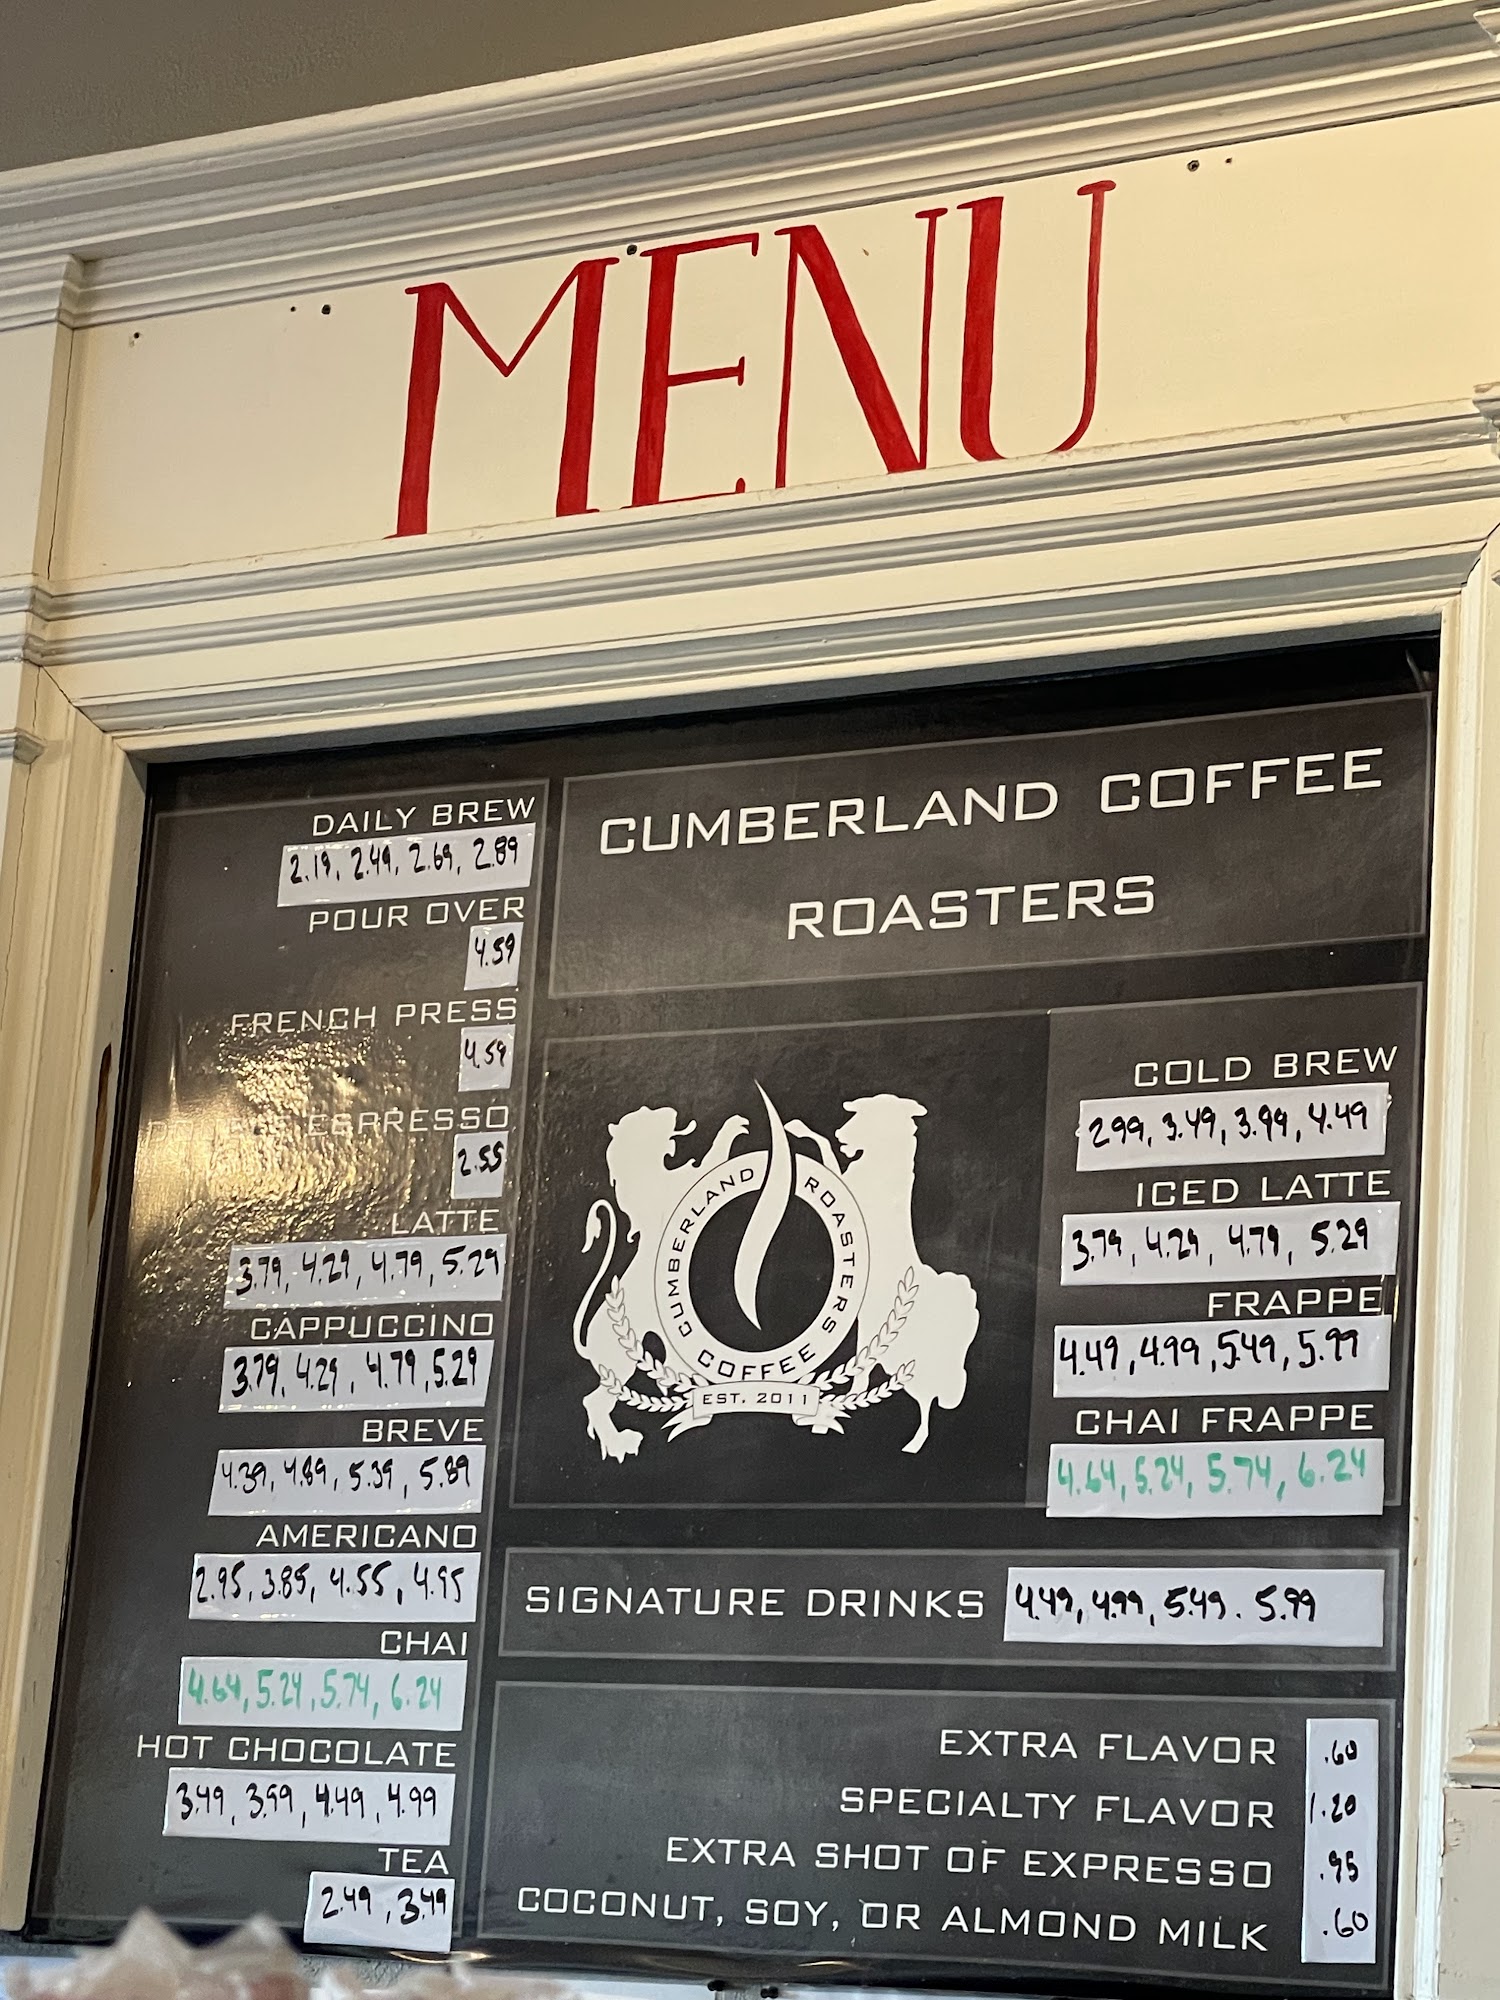 MENU
DAILY BREW
2.19, 2.49, 2.69, 2.89
POUR OVER
4.59
FRENCH PRESS
4.59
ESPRESSO
2.55
LATTE
3.79, 4.29, 4.79, 5.29
CAPPUCCINO
3.79, 4.29, 4.79, 5.29
BREVE
4.39, 4.89, 5.39, 5.89
AMERICANO
2.95, 3.85, 4.55, 4.95
CHAI
4.64, 5.24, 5.74, 6.24
HOT CHOCOLATE
3.49, 3.99, 4.49, 4.99
TEA
2.49, 3.49
CUMBERLAND COFFEE
ROASTERS
CUMBERLAND ROASTERS
COFFEE
EST. 2011
COLD BREW
2.99, 3.49, 3.99, 4.49
ICED LATTE
3.79, 4.29, 4.79, 5.29
FRAPPE
4.49, 4.99, 5.49, 5.99
CHAI FRAPPE
4.64, 5.24, 5.74, 6.24
SIGNATURE DRINKS 4.49, 4.99, 5.49. 5.99
EXTRA FLAVOR .60
SPECIALTY FLAVOR 1.20
EXTRA SHOT OF EXPRESSO .95
COCONUT, SOY, OR ALMOND MILK .60